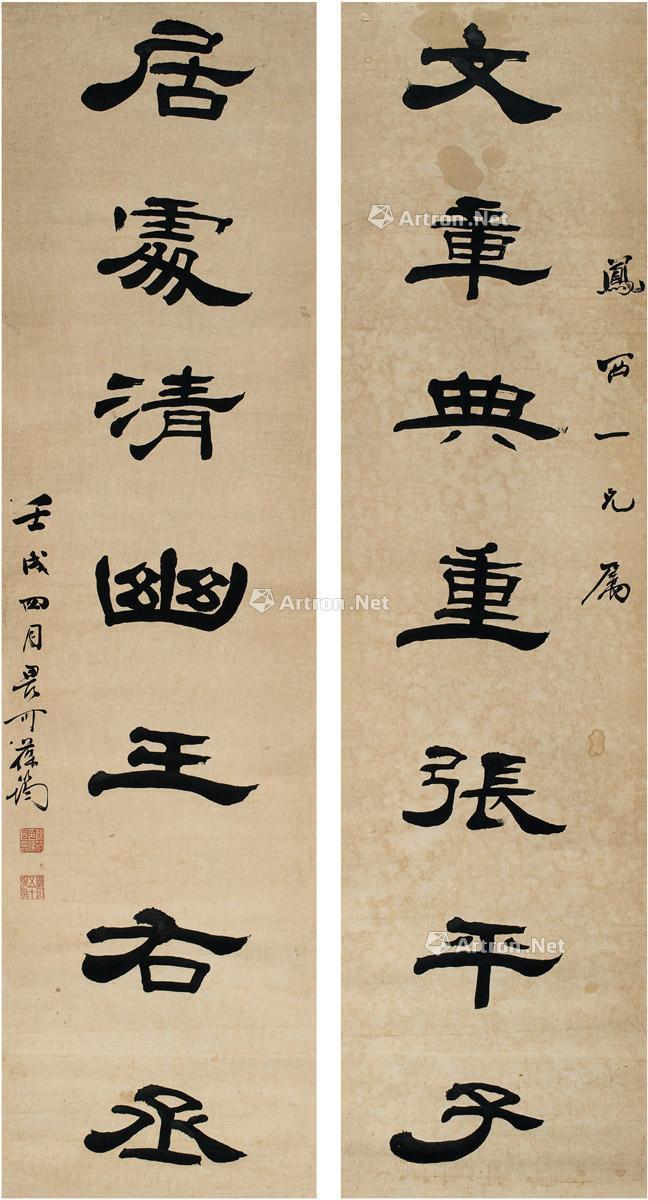 鳳冈一兄屬
文章典重張平子
居處清幽王右丞
壬戌四月晏可葆筠
Artron.Net
Artron.Net
Artron.Net